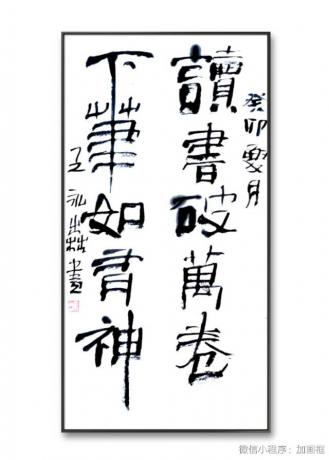 癸卯夏月
讀書破萬卷
下筆如有神
王永書
微信小程序：加画框